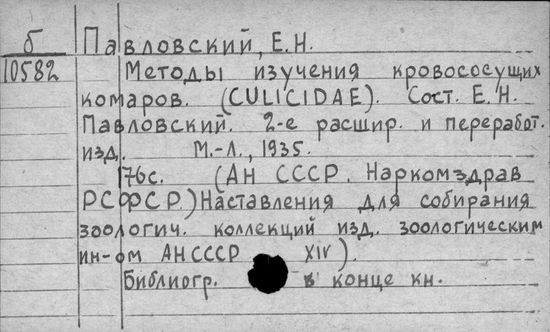 б Павловский, Е.Н.
10582 Методы изучения кровососущих
комаров. (CULICIDAE). Сост. Е.Н.
Павловский. 2-е расшир. и переработ.
изд. М.-Л., 1935.
176с. (АН СССР. Наркомздрав
РСФСР.) Наставления для собирания
зоологич. коллекций изд. зоологическим
ин-ом АН СССР XIV).
Библиогр. в конце кн.